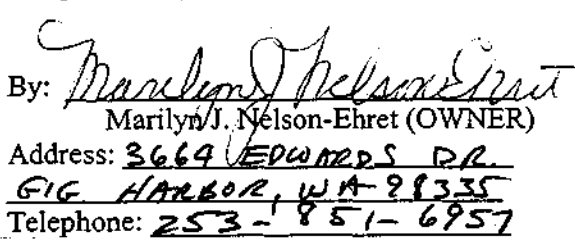 By: Marilyn J Nelson-Ehret
Marilyn J. Nelson-Ehret (OWNER)
Address: 3664 EDWARDS DR.
GIG HARBOR, WA 98335
Telephone: 253-851-6957